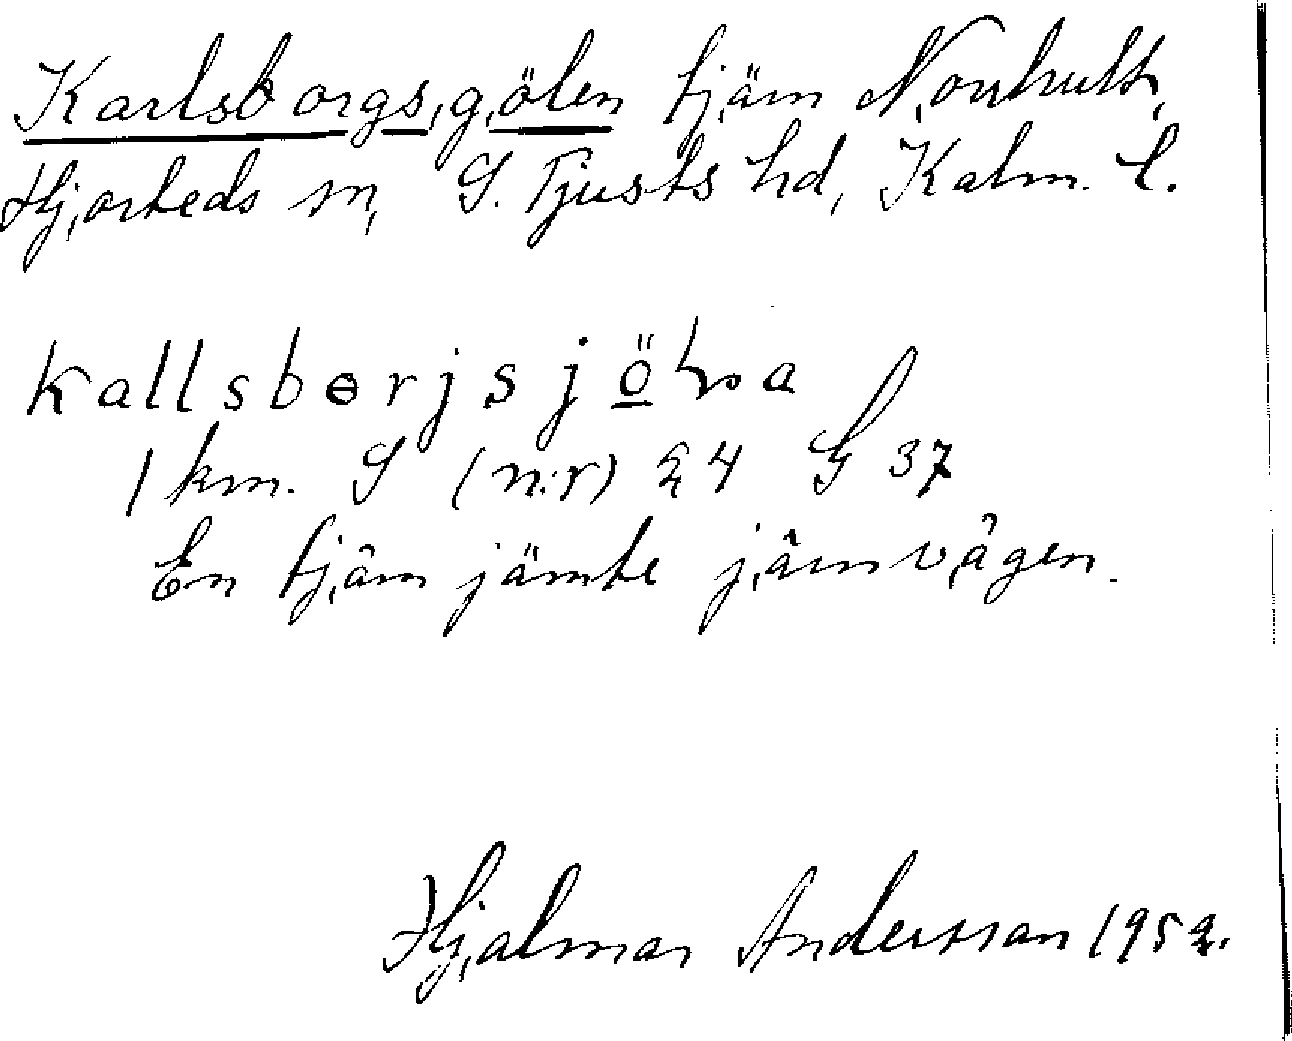 Karlsborgsgölen tjärn Norrhult,
Hjorteds sn, S. Tjusts hd, Kalm. l.
kallsbɵrjsjö̲lna
1 km. S (n:r) 24 G 37
En tjärn jämte järnvägen.
Hjalmar Andersson 1952.